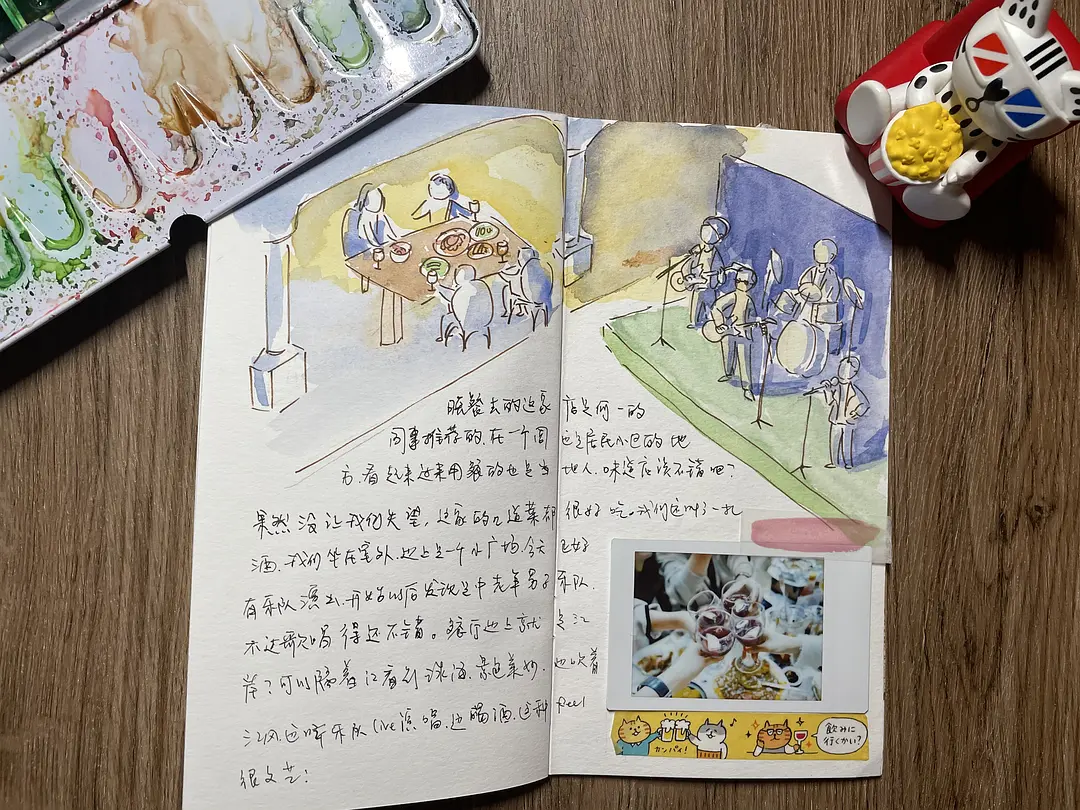 晚餐去的这家店是何一的
同事推荐的.在一个周边是居民小区的地
方.看起来过来用餐的也是当地地人.味道应该不错吧?
果然没让我们失望,这家的几道菜都很好吃.我们还叫了一扎
酒.我们坐在室外.边上是一个小广场.今天正好
有乐队演出.开始以后发现是中老年男子乐队.
不过歌唱得还不错。餐厅边上就是江
岸?可以隔着江看到珠海.景色美妙.边吹着
江风.边听乐队live演唱.边喝酒.这种feel
很文艺!
カンパイ!
飲みに
行くかい?